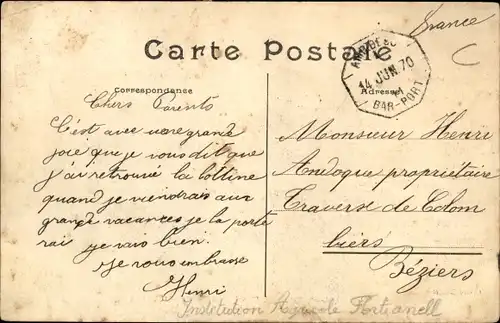 France
Carte Postale
Correspondanse
Adresse
14 JUN. 70
BAR-PORT
Chers Parents
C'est avec une grande
joie que je vous dit que
j'ai retrouvé la bottine
quand je viendrais aux
grande vacances je la porte
rai je vais bien.
Je vous embrasse
Henri
Monsieur Henri
Andoque propriétaire
Traverse de Colom
biers
Béziers
Institution Agricole